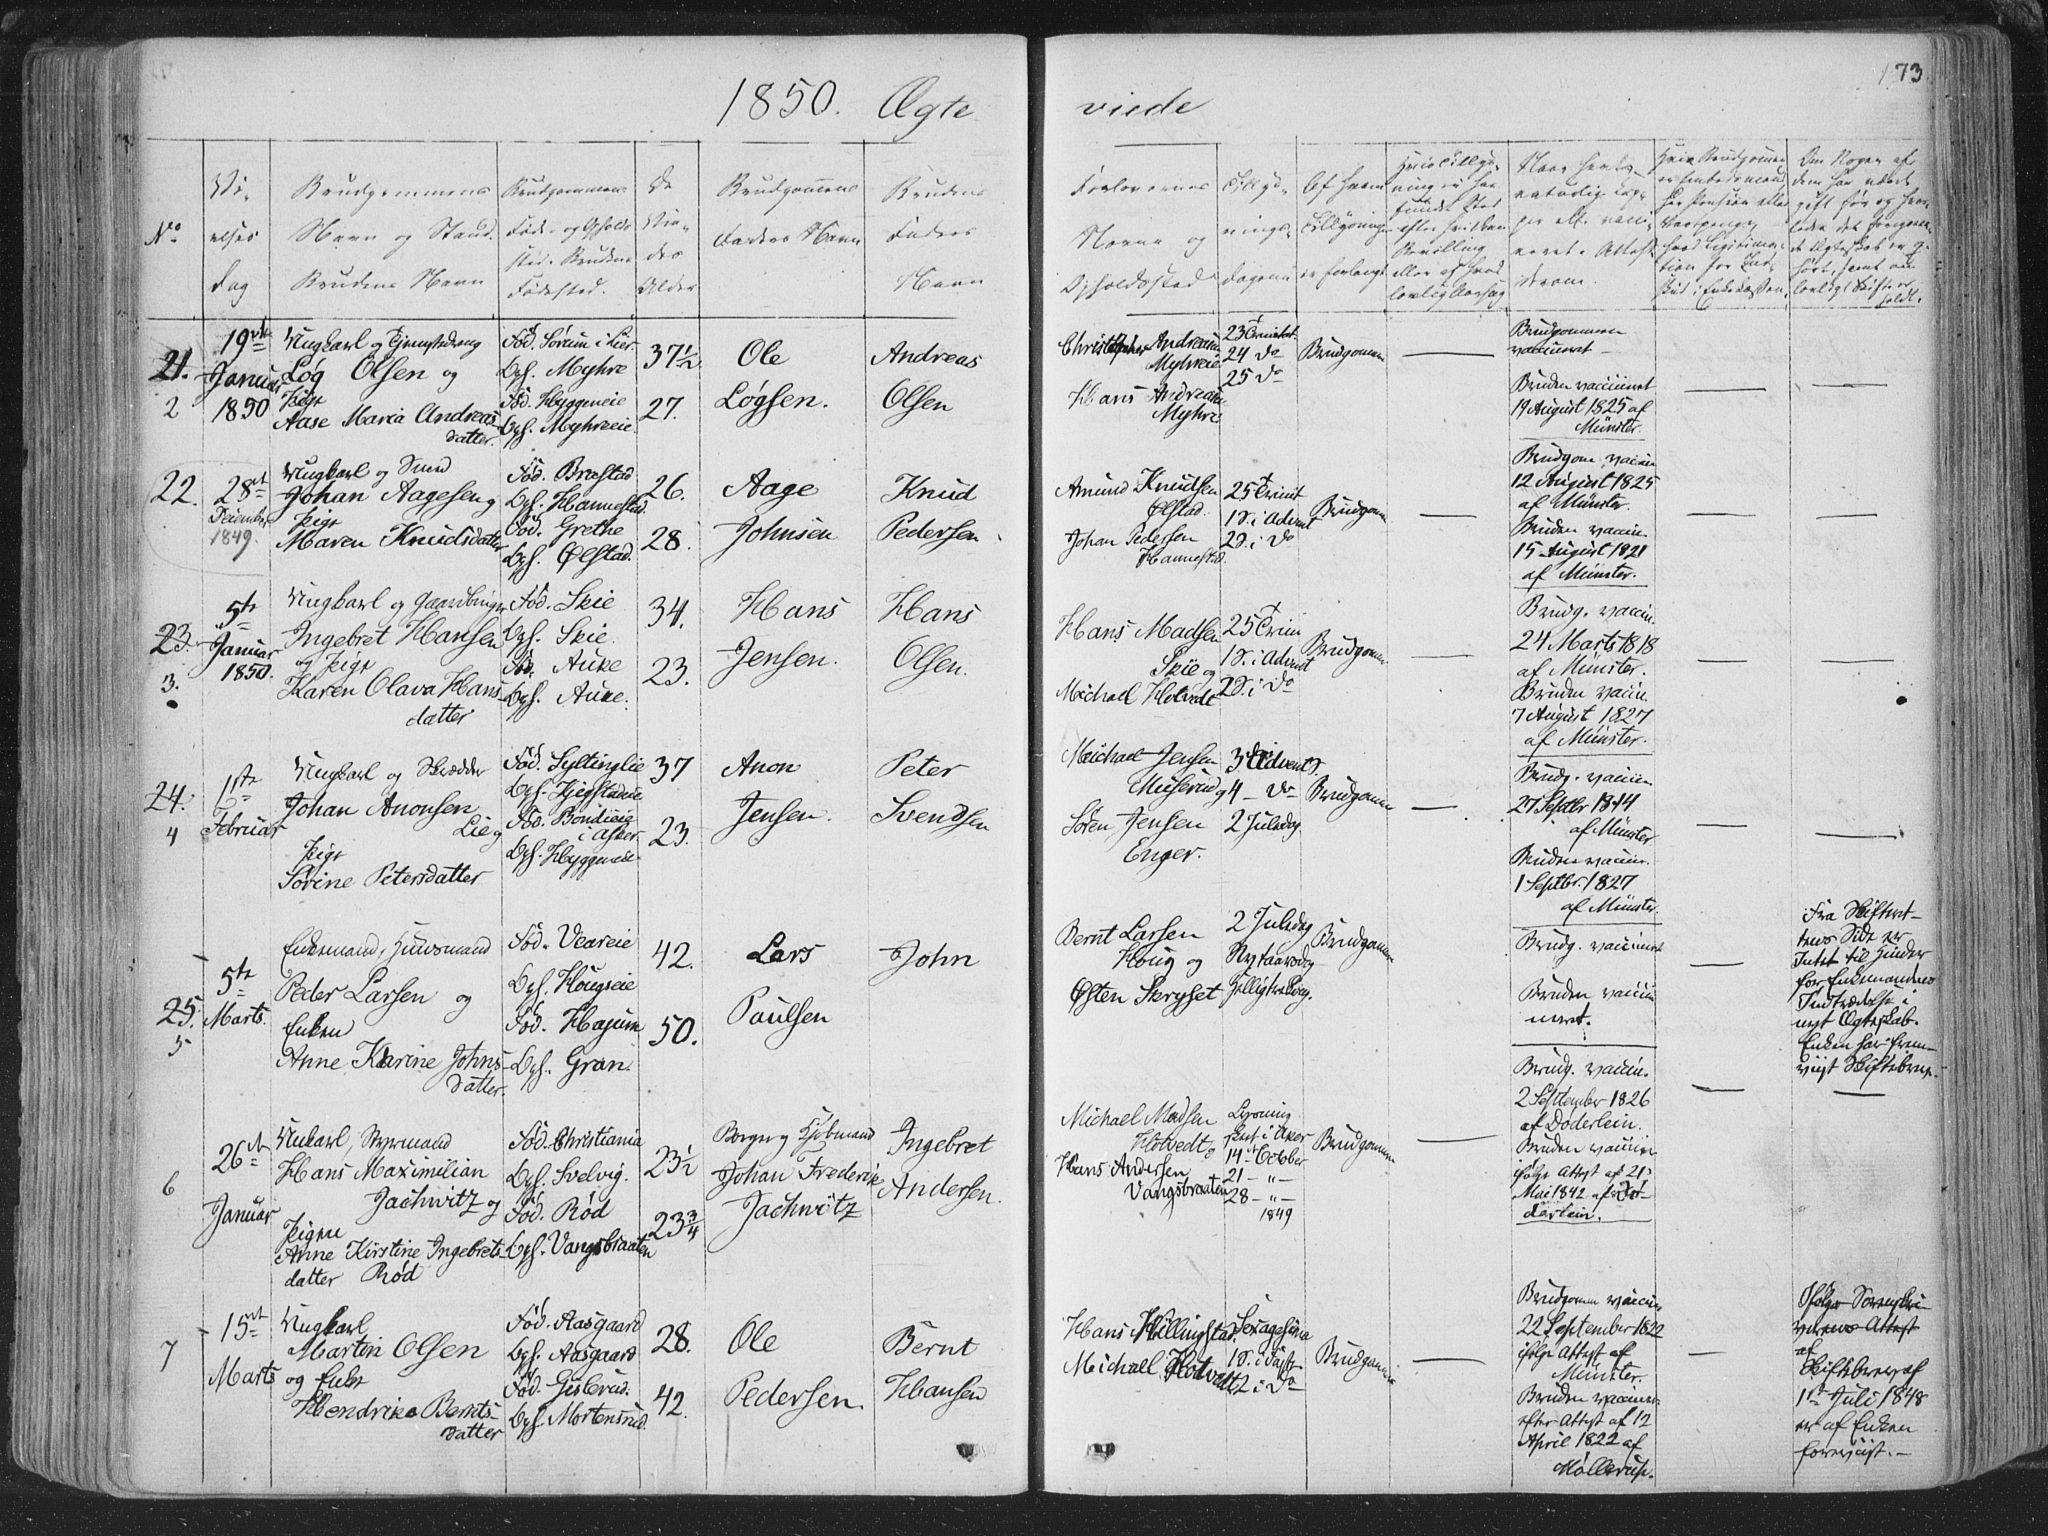 1850. Ægte
viede
173
No
Vi-
elses
Dag
Brudgommens
Navn og Stand.
Brudens Navn
Brudgommens
Føde- og Opholds
sted. Brudens
Fødested.
De
Vie-
des
Alder
Brudgommens
Faders Navn
Brudens
Faders
Navn
Forlovernes
Navne og
Opholdssted
Tillys-
nings-
dagene
Af hvem
Tillysningen
er forlangt
21.
2
19de
Januar
1850
Ungkarl og Tjenestedreng
Log Olsen og
Pige
Aase Maria Andreas-
datter.
Fød. Sørum i Lier.
Oph. Myhre
Fød. Hyggeneie
Oph. Myhreeie.
37 1/2
27.
Ole
Løgsen.
Andreas
Olsen
Christopher Andreasen
Myhreie
Hans Andreasen
Myhre
23 Trinitat.
24 do
25 do
Brudgommen
Brudgommen
vaccineret
Bruden vaccineret
19 August 1825 af
Münster.
22.
28de
December
1849.
Ungkarl og Smed
Johan Aagesen og
Pige
Maren Knudsdatter
Fød. Brastad
Oph. Hannestad.
Fød. Grethe
Oph. Ølstad.
26.
28.
Aage
Johnsen
Knud
Pedersen
Amund Knudsen
Ølstad.
Johan Pedersen
Hannestad.
25 Trinit
1 S. i Advent
2 S. i do
Brudgommen
Brudgom. vaccin.
12 August 1825
af Münster.
Bruden vaccin.
15 August 1821
af Münster.
23.
3.
5te
Januar
1850.
Ungkarl og Gaardbruger
Ingebret Hansen
og Pige
Karen Olava Hans-
datter
Fød. Skie
Oph. Skie.
Fød. Auke
Oph. Auke.
34.
23.
Hans
Jensen.
Hans
Olsen.
Hans Madsen
Skie og
Michael Hotvedt
25 Trin
1 S. i Advent
2 S. i do
Brudgommen
Brudg. vaccin.
24 Marts 1818
af Münster.
Bruden vaccin.
7 August 1827
af Münster.
24.
4
1ste
Februar
Ungkarl og Skrædder
Johan Anonsen
Lie og
Pige
Sørine Petersdatter
Fød. Syltinglie
Fød. Bondieie
i Asker.
Oph. Hyggeneie
37
23.
Anon
Jensen.
Peter
Svendsen
Michael Jensen
Muserud og
Søren Jensen
Enger.
3 Advents.
4 - do
2 Juledag
Brudgommen
Brudg. vaccin.
27 Septbr 1814
af Münster
Bruden vaccin.
1 Septbr. 1827
af Münster.
25.
5
5te
Marts.
Enkemand, Huusmand
Peder Larsen og
Enken
Anne Karine Johns-
datter.
Fød. Veareie
Oph. Hougseie
Fød. Hajum
Oph. Gran.
42.
50.
Lars
Paulsen
John
Bernt Larsen
Houg og
Østen Skryset
2 Juledag
Nytaarsdag
Helligtrekdag.
Brudgommen
Brudg. vaccineret
Bruden vaccin
neret.
Fra Skifteret-
tens Side er
Intet til Hinder
for Enkemandens
Indtrædelse i
nyt Ægteskab.
Enken har frem-
viist Skiftebrev.
6
26de
Januar
Unkarl, Styrmand
Hans Maximilian
Jachwitz og
Pigen
Anne Kirstine Ingebrets-
datter Rød
Fød. Christiania
Oph. Svelvig.
Fød. Rød
Oph. Vangsbraaten
23 1/2
23 3/4
Borger og Kjøbmand
Johan Frederik
Jachwitz
Ingebret
Andersen.
Michael Madsen
Hotvedt og
Hans Andersen
Vangsbraaten
Lysning
skeet i Aker
14de October
21 - " -
28 - " -
1849
Brudgommen
Brudg. vaccin.
2 September 1826
af Døderlein.
Bruden vaccin
ifølge Attest af 21de
Mai 1842 af Dø-
derlein.
7
15de
Marts
Ungkarl
Martin Olsen
og Enke
Hendrike Bernts-
datter
Fød. Aasgaard
Oph. Aasgaard
Fød. Gislerud.
Oph. Mortensrud.
28.
42.
Ole
Pedersen.
Bernt
Hansen
Hans Killingstad.
Michael Hotvedt
Sexagesima
1 S. i Faste
2 i do
Brudgommen
Brudgommen vaccin
22 September 1822
ifølge Attest af
Münster.
Bruden vaccineret
efter Attest af 12
April 1822 af
Møllerup.
Ifølge Sorenskri-
verens Attest
af
Skiftebrev af
1ste Juli 1848
er af Enken
foreviist.-